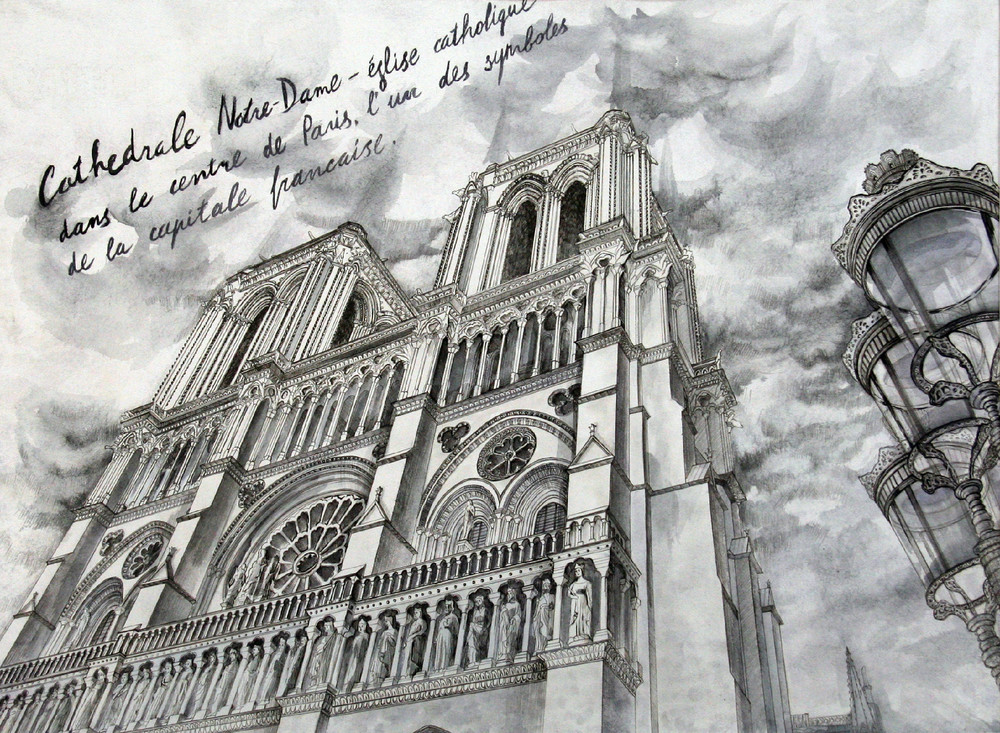 Cathedrale Notre-Dame – église catholique
dans le centre de Paris, l'un des symboles
de la capitale francaise.